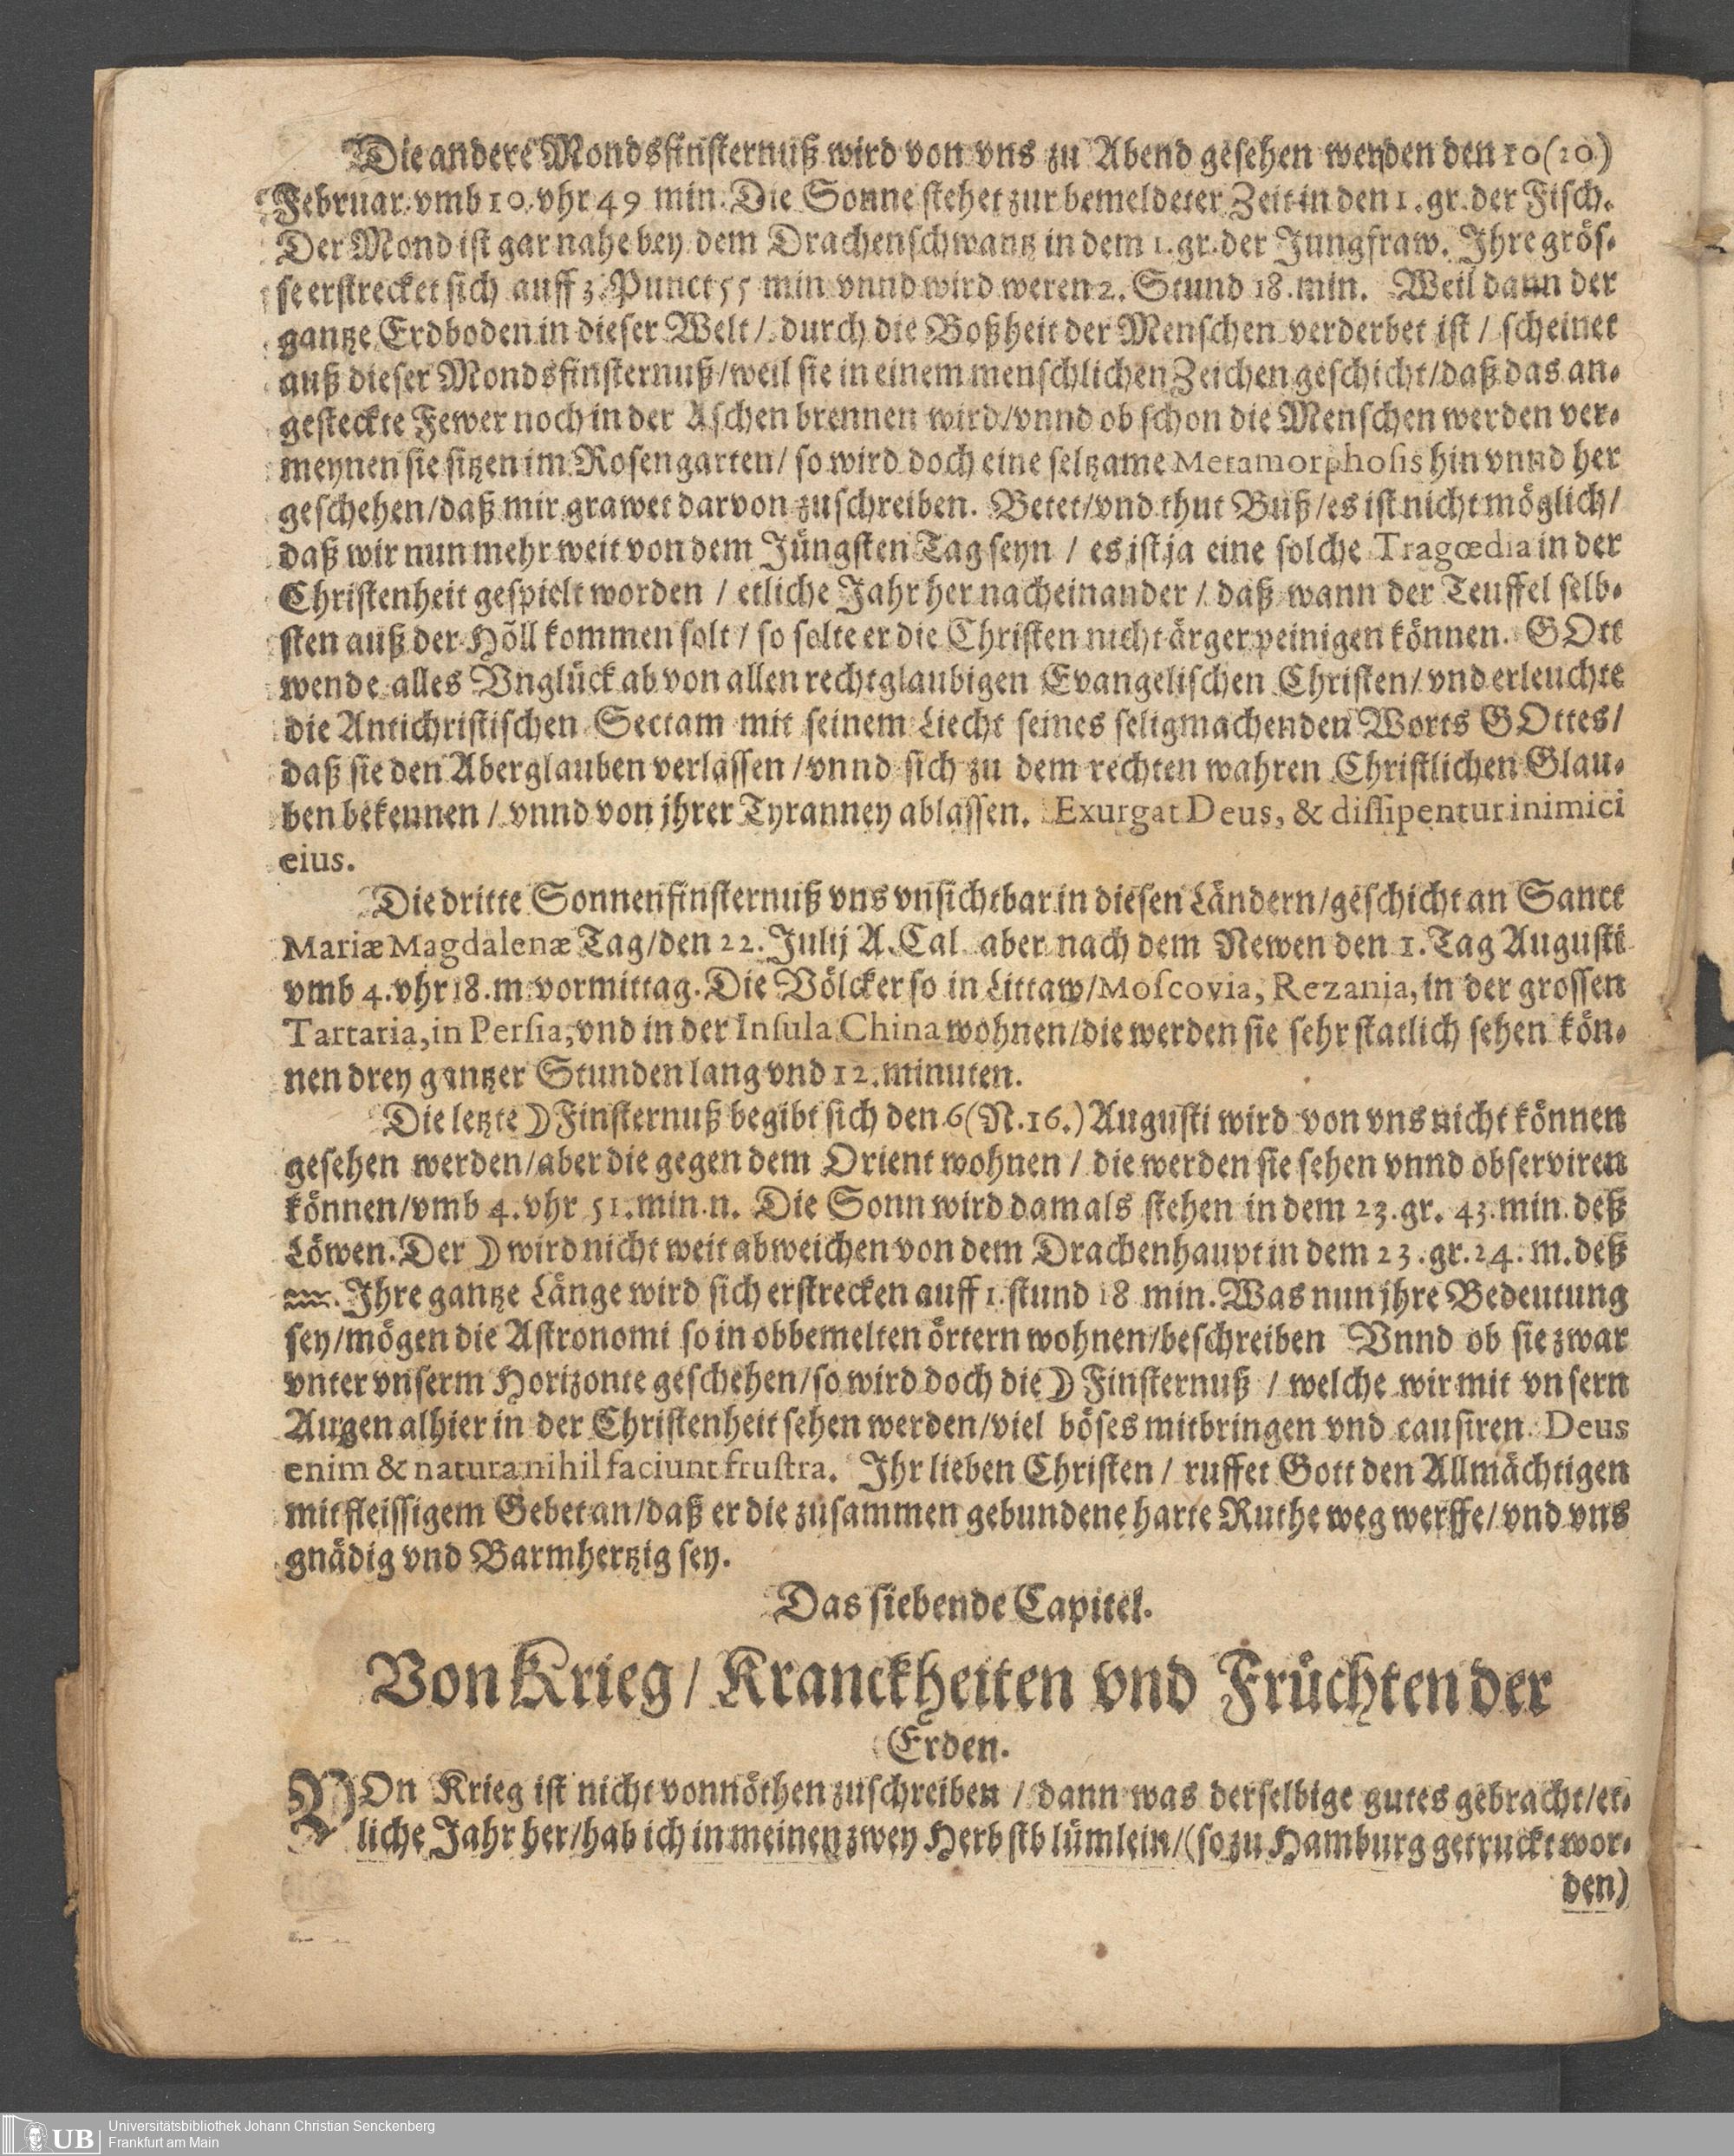 Die andere Mondsfinsternuß wird von vns zu Abend gesehen werden den 10(20)
Februar. vmb 10. vhr 49 min. Die Sonne stehet zur bemeldeter Zeit in den 1. gr. der Fisch.
Der Mond ist gar nahe bey dem Drachenschwantz in dem 1. gr. der Jungfraw. Ihre grös-
se erstrecket sich auff 3. Punct 55 min vnnd wird weren 2. Stund 18. min. Weil dann der
gantze Erdboden in dieser Welt / durch die Boßheit der Menschen verderbet ist / scheinet
auß dieser Mondsfinsternuß / weil sie in einem menschlichen Zeichen geschicht / daß das an-
gesteckte Fewer noch in der Aschen brennen wird / vnnd ob schon die Menschen werden ver-
meynen sie sitzen im Rosengarten / so wird doch eine seltzame Metamorphosis hin vnnd her
geschehen / daß mir grawet darvon zuschreiben. Betet / vnd thut Buß / es ist nicht möglich /
daß wir nun mehr weit von dem Jüngsten Tag seyn / es ist ja eine solche Tragœdia in der
Christenheit gespielt worden / etliche Jahr her nacheinander / daß wann der Teuffel selb-
sten auß der Höll kommen solt / so solte er die Christen nicht ärger peinigen können. GOtt
wende alles Vnglück ab von allen rechtglaubigen Evangelischen Christen / vnd erleuchte
die Antichristischen Sectam mit seinem Liecht seines seligmachenden Worts GOttes /
daß sie den Aberglauben verlassen / vnnd sich zu dem rechten wahren Christlichen Glau-
ben bekennen / vnnd von jhrer Tyranney ablassen. Exurgat Deus, & dissipentur inimici
eius.
Die dritte Sonnenfinsternuß vns vnsichtbar in diesen Ländern / geschicht an Sanct
Mariæ Magdalenæ Tag / den 22. Julij A. Cal. aber nach dem Newen den 1. Tag Augusti
vmb 4. vhr 18. m vormittag. Die Völcker so in Littaw / Moscovia, Rezania, in der grossen
Tartaria, in Persia, vnd in der Insula China wohnen / die werden sie sehr statlich sehen kön-
nen drey gantzer Stunden lang vnd 12. minuten.
Die letzte ☽ Finsternuß begibt sich den 6 (N. 16.) Augusti wird von vns nicht können
gesehen werden / aber die gegen dem Orient wohnen / die werden sie sehen vnnd observiren
können / vmb 4. vhr 51. min. n. Die Sonn wird damals stehen in dem 23. gr. 43. min. deß
Löwen. Der ☽ wird nicht weit abweichen von dem Drachenhaupt in dem 23. gr. 24. m. deß
♒. Ihre gantze Länge wird sich erstrecken auff 1. stund 18 min. Was nun jhre Bedeutung
sey / mögen die Astronomi so in obbemelten örtern wohnen / beschreiben Vnnd ob sie zwar
vnter vnserm Horizonte geschehen / so wird doch die ☽ Finsternuß / welche wir mit vnsern
Augen alhier in der Christenheit sehen werden / viel böses mitbringen vnd causiren. Deus
enim & natura nihil faciunt frustra. Ihr lieben Christen / ruffet Gott den Allmächtigen
mit fleissigem Gebet an / daß er die zusammen gebundene harte Ruthe weg werffe / vnd vns
gnädig vnd Barmhertzig sey.
Das siebende Capitel.
Von Krieg / Kranckheiten vnd Früchten der
Erden.
VOn Krieg ist nicht vonnöthen zuschreiben / dann was derselbige gutes gebracht / et-
liche Jahr her / hab ich in meinen zwey Herbstblümlein / (so zu Hamburg getruckt wor-
den)
UB
Universitätsbibliothek Johann Christian Senckenberg
Frankfurt am Main